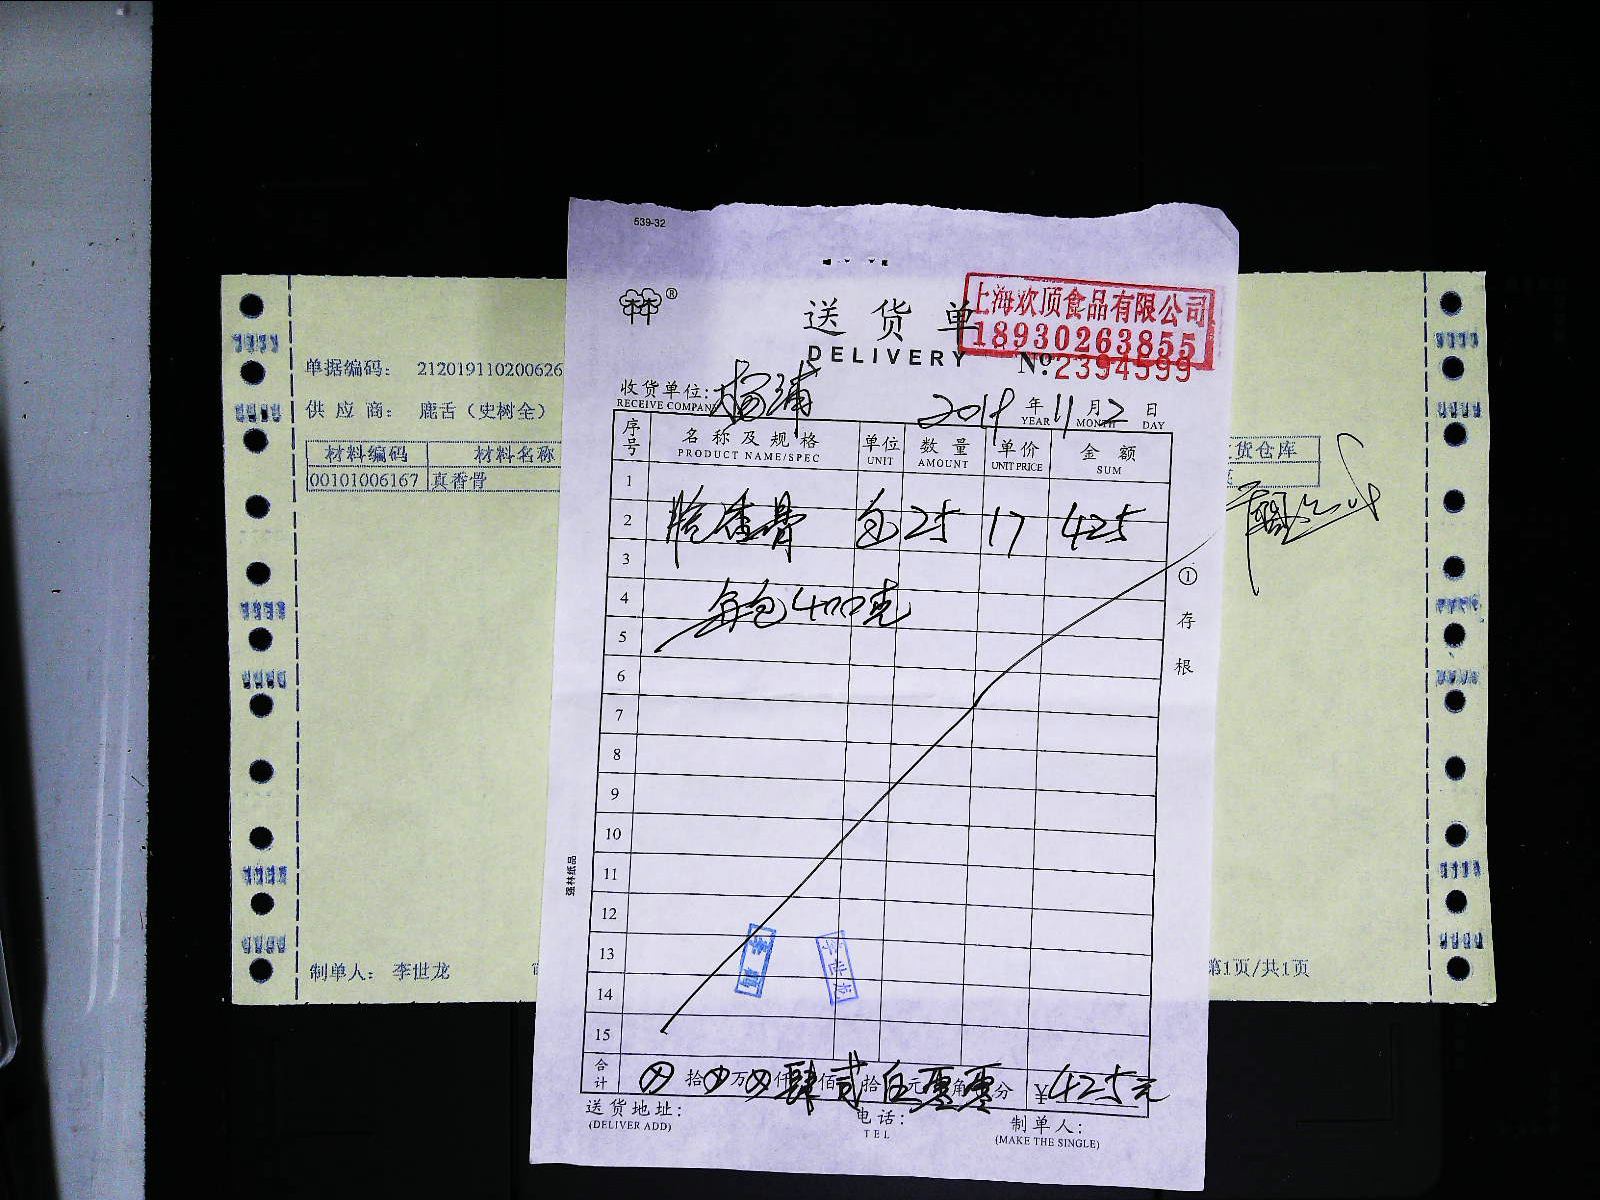 539-32
送货单
DELIVERY
上海欢顶食品有限公司
18930263855
№ 2394599
收货单位: 杨浦
RECEIVE COMPANY
2019 年 11 月 2 日
YEAR MONTH DAY
序号 名称及规格 单位 数量 单价 金额
PRODUCT NAME/SPEC UNIT AMOUNT UNIT PRICE SUM
1
2 香骨 包 25 17 425
3
4 每包400克
5
6
7
8
9
10
11
12
13
14
15
合计 拾 万 仟 肆 佰 贰 拾 伍 元 零 角 零 分 ¥425元
送货地址: 电话: 制单人:
(DELIVER ADD) TEL (MAKE THE SINGLE)
① 存根
强林纸品
李世龙
单据编码: 212019110200626
供应商: 鹿舌（史树全）
材料编码 材料名称
00101006167 真香骨
货仓库
制单人: 李世龙
第1页/共1页